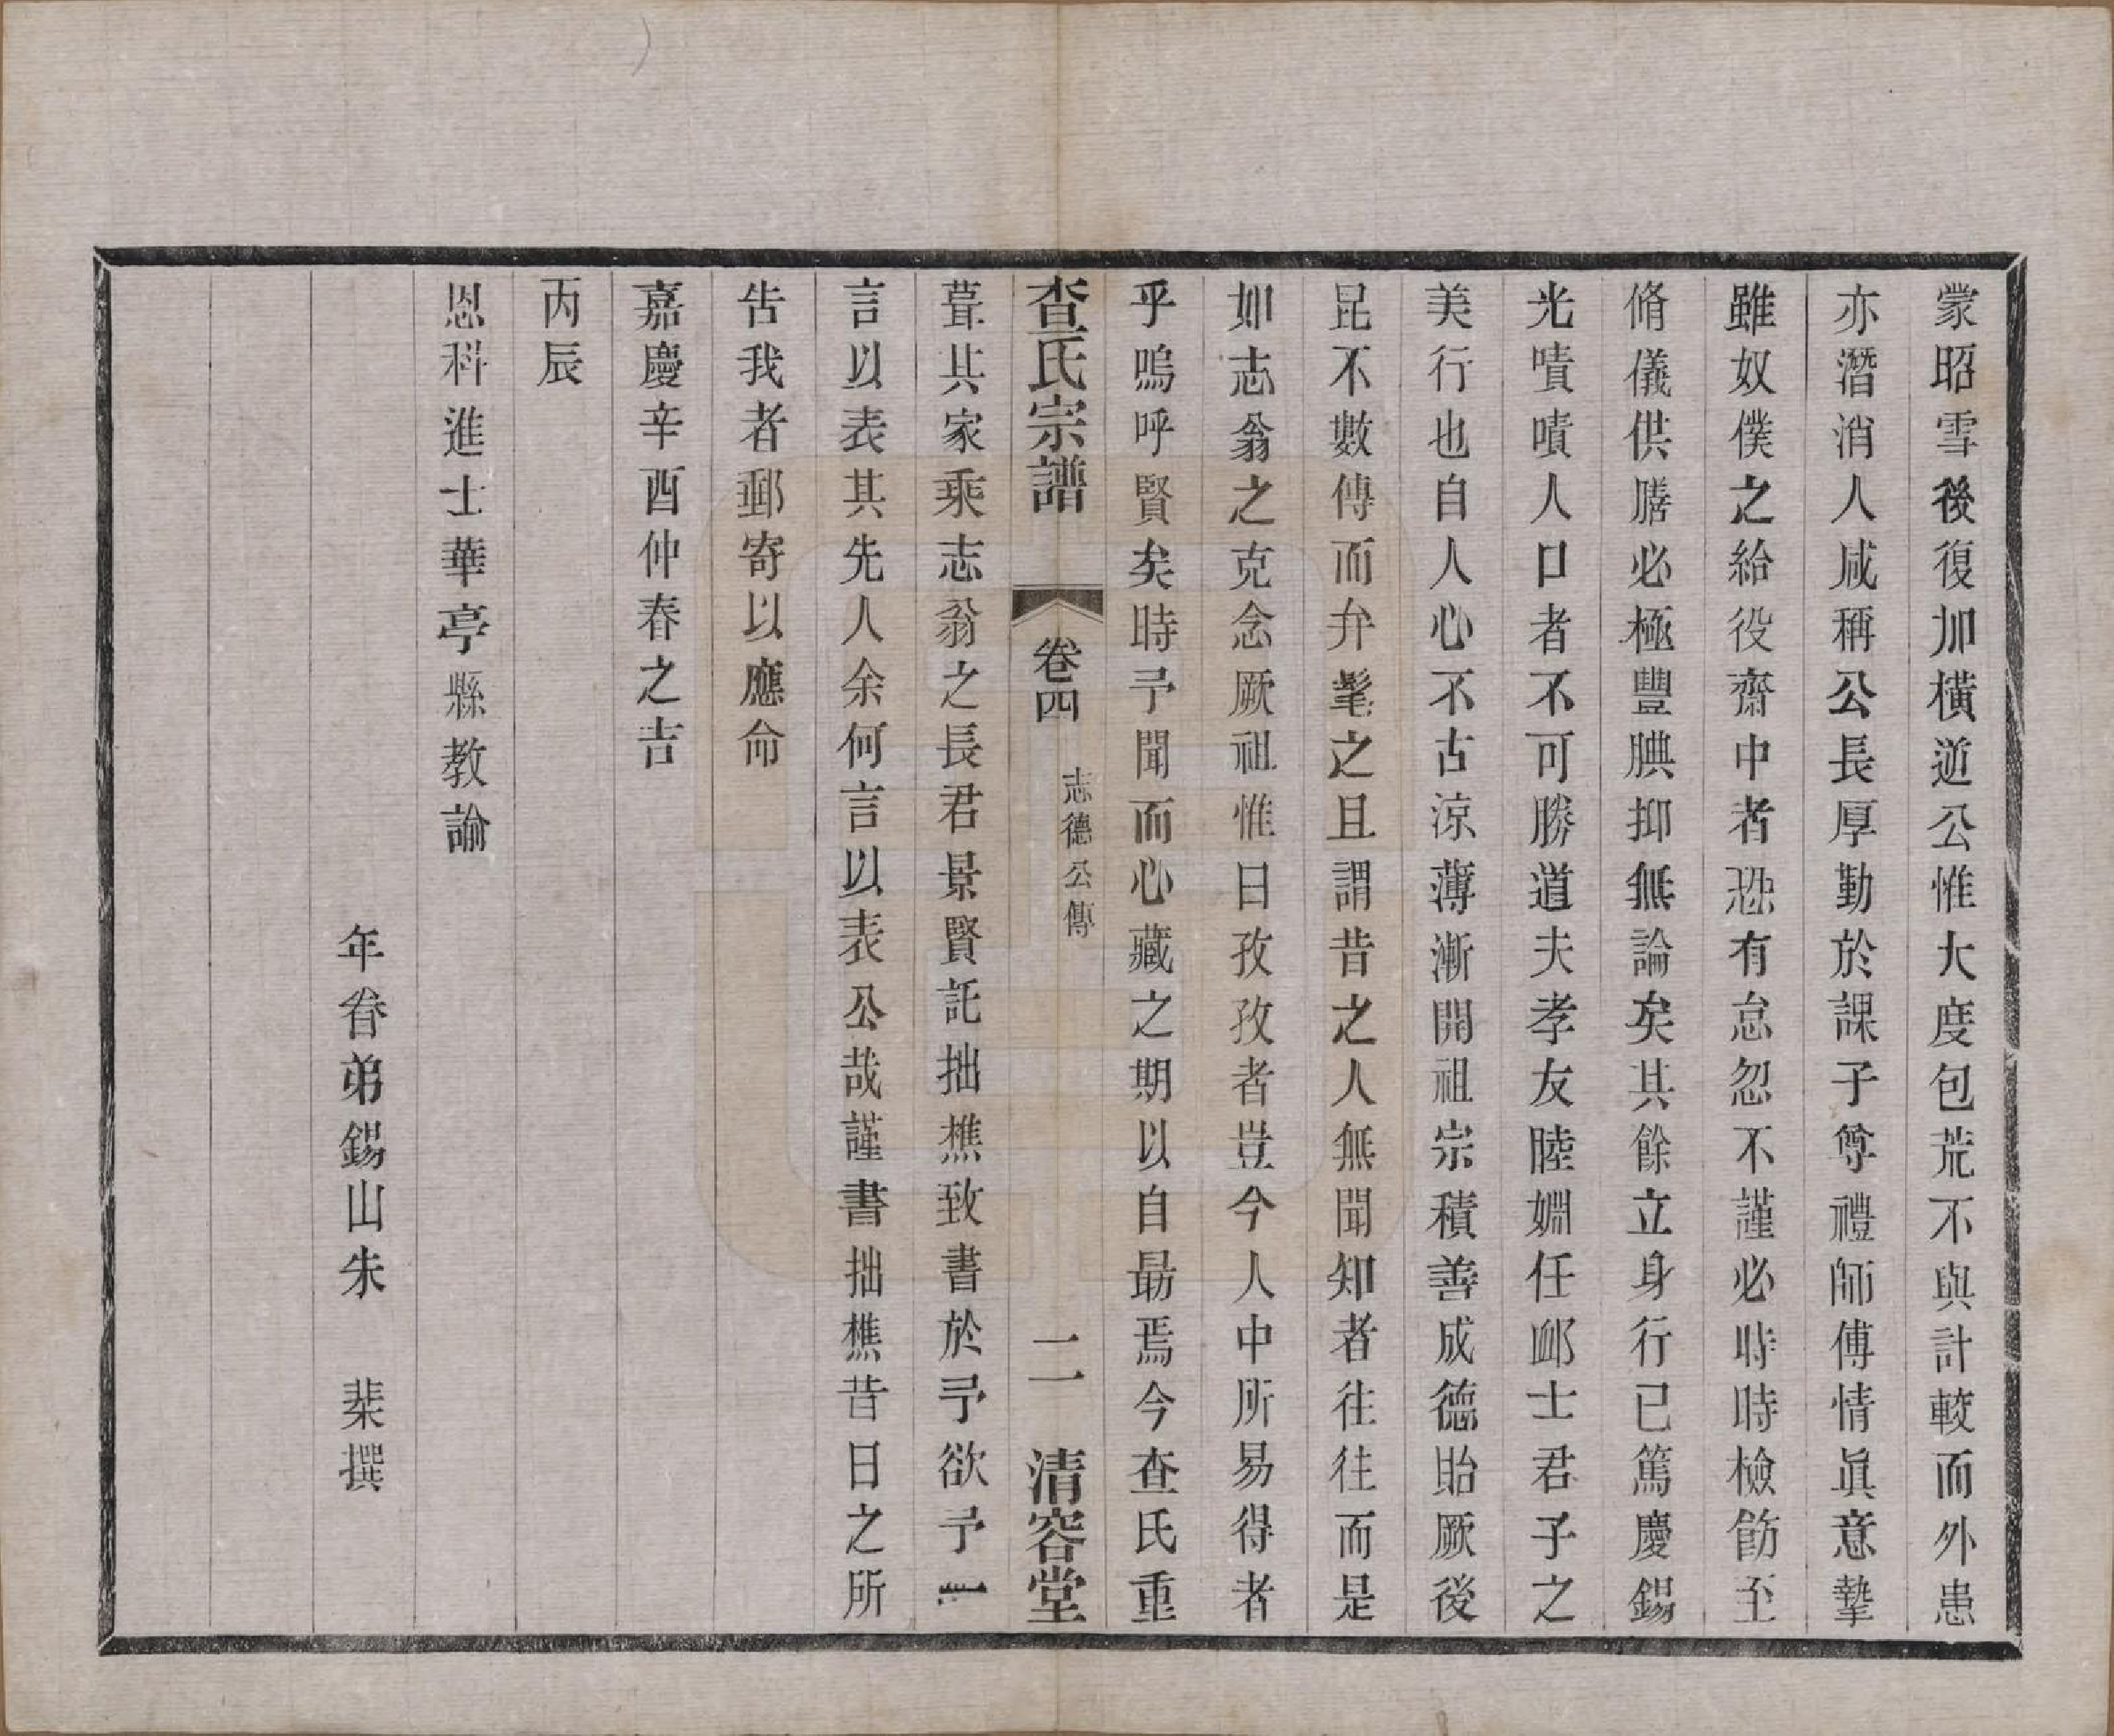 蒙昭雪後復加橫逆公惟大度包荒不與計較而外患
亦潛消人咸稱公長厚勤於課子尊禮師傅情眞意摯
雖奴僕之給役齋中者恐有怠忽不謹必時時檢飭至
脩儀供膳必極豐腆抑無論矣其餘立身行已篤慶錫
光嘖嘖人口者不可勝道夫孝友睦婣任卹士君子之
美行也自人心不古涼薄漸開祖宗積善成德貽厥後
昆不數傳而弁髦之且謂昔之人無聞知者往往而是
如志翁之克念厥祖惟日孜孜者豈今人中所易得者
乎嗚呼賢矣時予聞而心藏之期以自勗焉今查氏重
查氏宗譜 卷四 志德公傳 二 清容堂
葺其家乘志翁之長君景賢託拙樵致書於予欲予一
言以表其先人余何言以表公哉謹書拙樵昔日之所
告我者郵寄以應命
嘉慶辛酉仲春之吉
丙辰
恩科進士華亭縣教諭
年眷弟錫山朱 棻撰